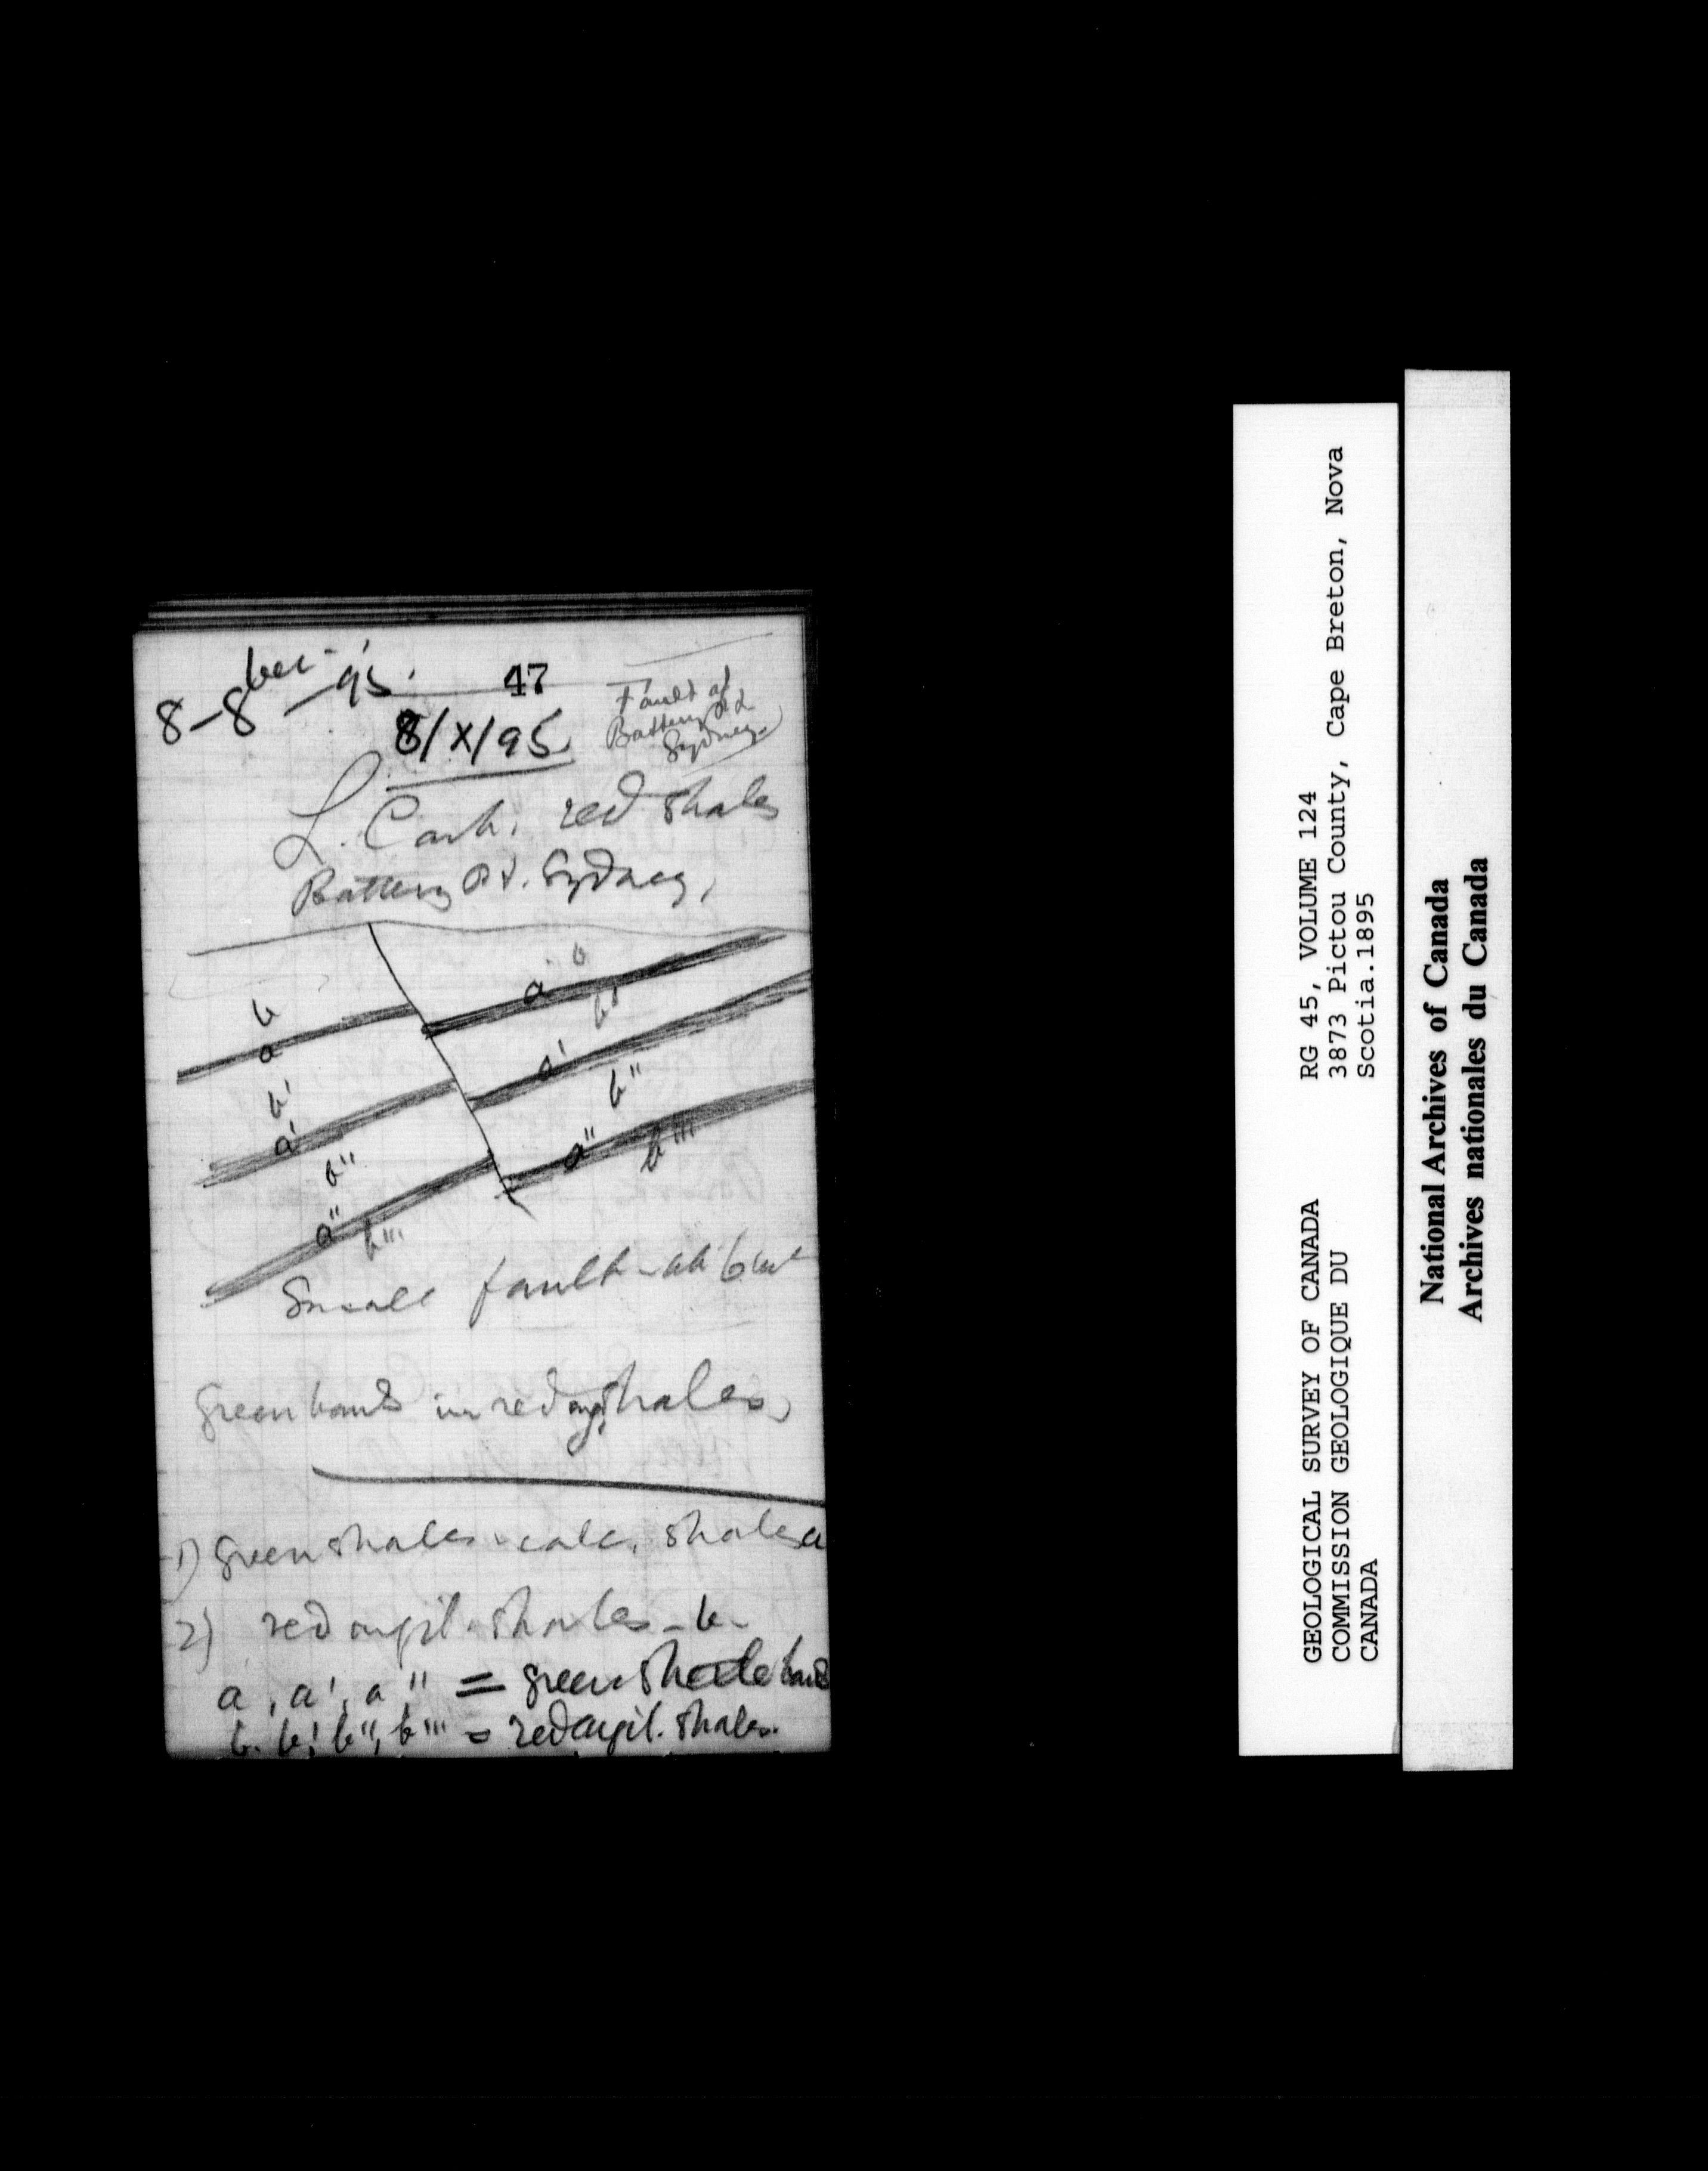 8-8ber-'95.
47
8/X/95
Fault at
Battery Pt.
Sydney.
L. Carb. red shales
Battery Pt. Sydney,
b
a
b'
a'
b"
a"
b'''
b
a
b'
a'
b"
a"
b'''
Small fault
Green bands in red argil. shales,
1) Green shales - calc. shales a
2) red argil. shales - b -
a, a', a" = green shale bands
b. b', b", b''' = red argil. shales.
GEOLOGICAL SURVEY OF CANADA
COMMISSION GEOLOGIQUE DU
CANADA
RG 45, VOLUME 124
3873 Pictou County, Cape Breton, Nova
Scotia.1895
National Archives of Canada
Archives nationales du Canada